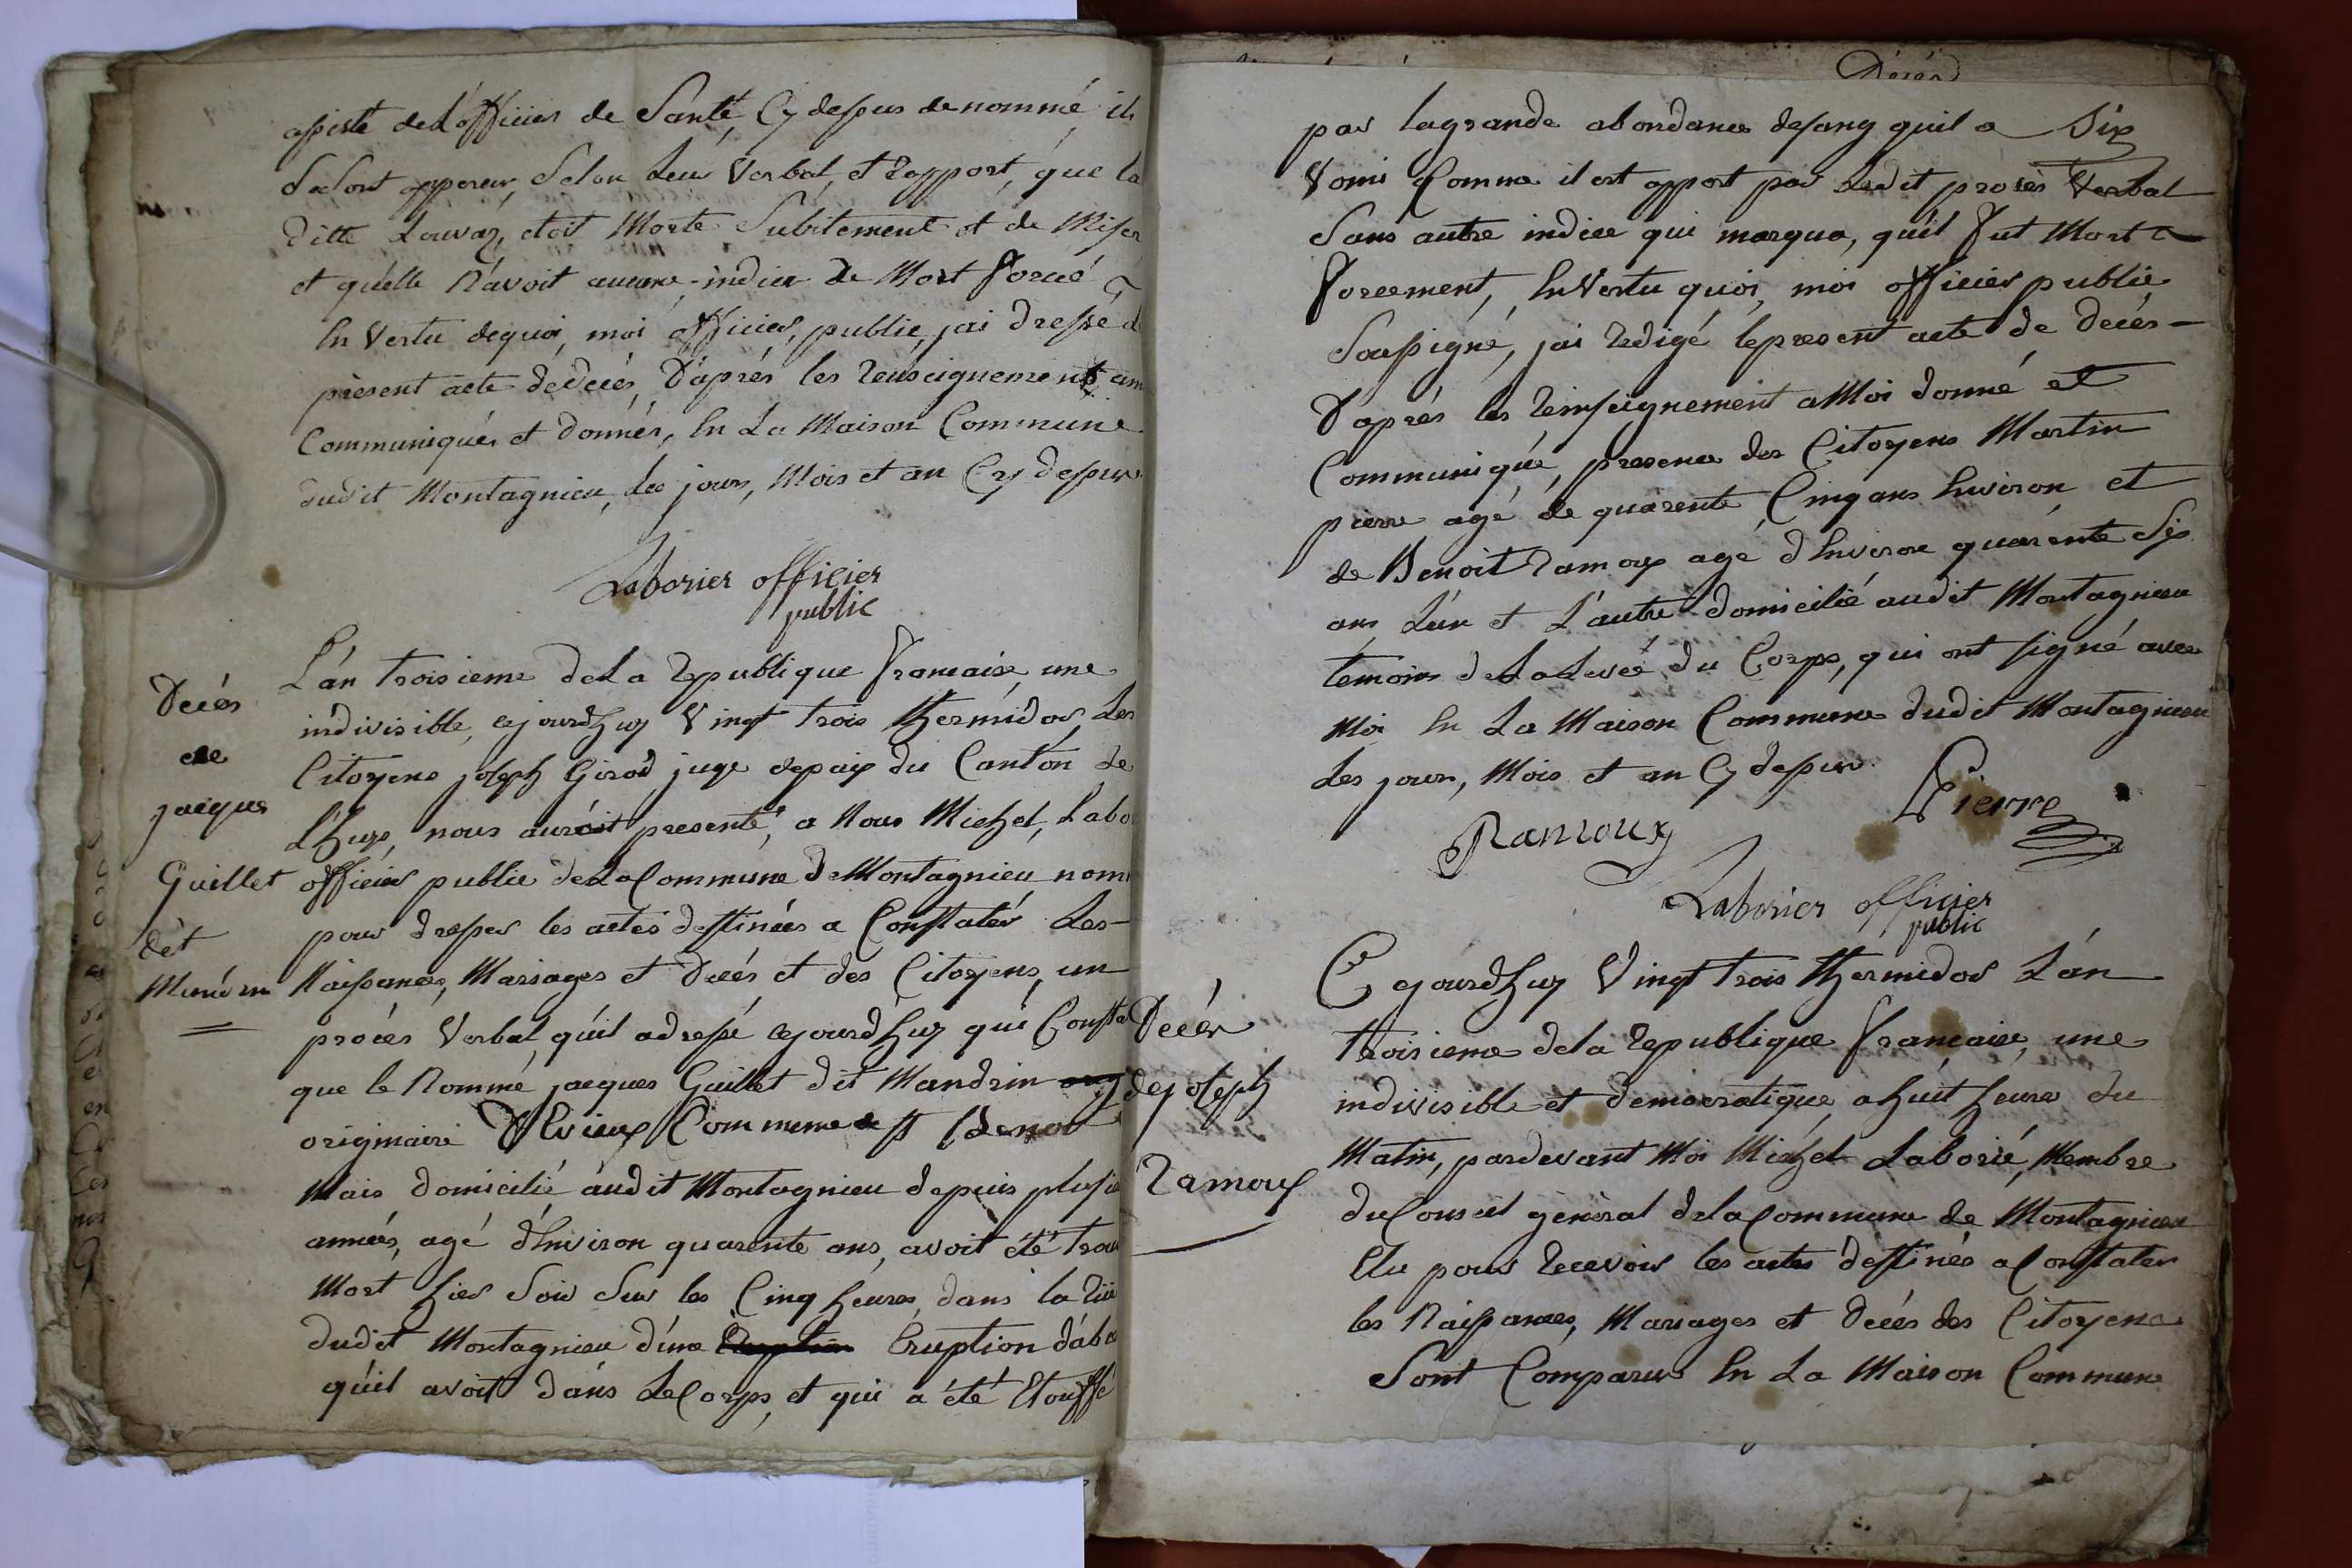 assisté de L'officier de Santé Cy dessus denommé ils
Se Sont apperçu, Selon Leur Verbal, et Rapport, que la
ditte Louvaz, etoit Morte Subitement et de Miser
et quélle N'avoit aucune indice de Mort Forcé
En Vertu dequoi, moi officier, public, jai dressé
présent acte dedécés, D'aprés les Renseignement
Communiqués et donnés, En La Maison Commune
dudit Montagnieu, Les jours, Mois et an Cy dessus
Laborier officier
public
Décés
de
jacques
Guillet
dit
Mandrin
L'án troisieme deLa Republique francaise, une
indivisible, cejourdhuy Vingt trois thermidor, Les
Citoyens joseph Girod juge depaix du Canton de
Lhuys, nous auroit presenté, a Nous Michel, Labo
officier public deLaCommune de Montagnieu nom
pour dresser les actes destinées a Constatér Les
Naissances, Mariages et Décés et des Citoyens, un
procés Verbal, qu'il adressé cejourdhuy qui Consta
que le Nommé jacques Guillet dit Mandrin
originaire Commune de st Benoit
Mais domicilié áudit Montagnieu depuis plusie
années, agé d'Environ quarente ans, avoit été trou
Mort hier Soir Sur les Cinq heures, dans la
dudit Montagnieu d'úne Eruption
qu'il avoit dáns LeCorps, et qui a été Etouffé
Décés
par lagrande abondance desang quil a Six
Vomi Comme il est apport par Ledit procès Verbal
Sans autre indice qui marqua, qu'il fut Mort
Forcement, EnVertu quoi, moi officier public
Soussigné, jai Redigé lepresent acte de Décés
D'aprés les Renseignement a Moi donné et
Communiqué, presence des Citoyens Martin
pierre agé de quarente Cinq ans Environ et
de Benoit Ramoux age d'Environ quarénte Six
ans L'un et L'autre domicilié audit Montagnieu
temoins deLaLevée du Corps, qui ont signé avec
Moi En La Maison Commune dudit Montagnieu
Les jour, Mois et an Cy dessus.
Pierre
Ramoux
Laborier officier
public
Décés
dejoseph
Ramoux
Cejourdhuy Vingt trois thermidor L'án
troisieme dela Republique francaise, une
indivisible et democratique, ahuit heure du
Matin, pardevant Moi Michel Laborié, Membre
duConseil général delaCommune de Montagnieu
Elu pour Recevoir les actes destinés aConstater
les Naissances, Mariages et Décés des Citoyens
Sont Comparus En La Maison Commune